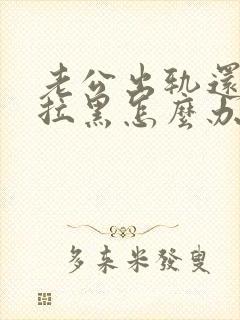 老公出軌還
拉黑怎麼办
多来米發叟